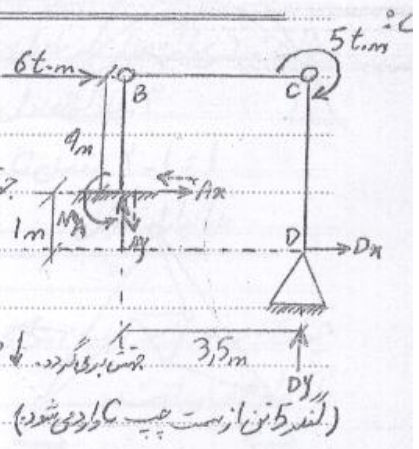 5t.m
6t.m
B
C
4m
Ax
MA
Ay
1m
D
Dx
3,5m
Dy
(لنگر 5 تن از سمت چپ C وارد می‌شود)